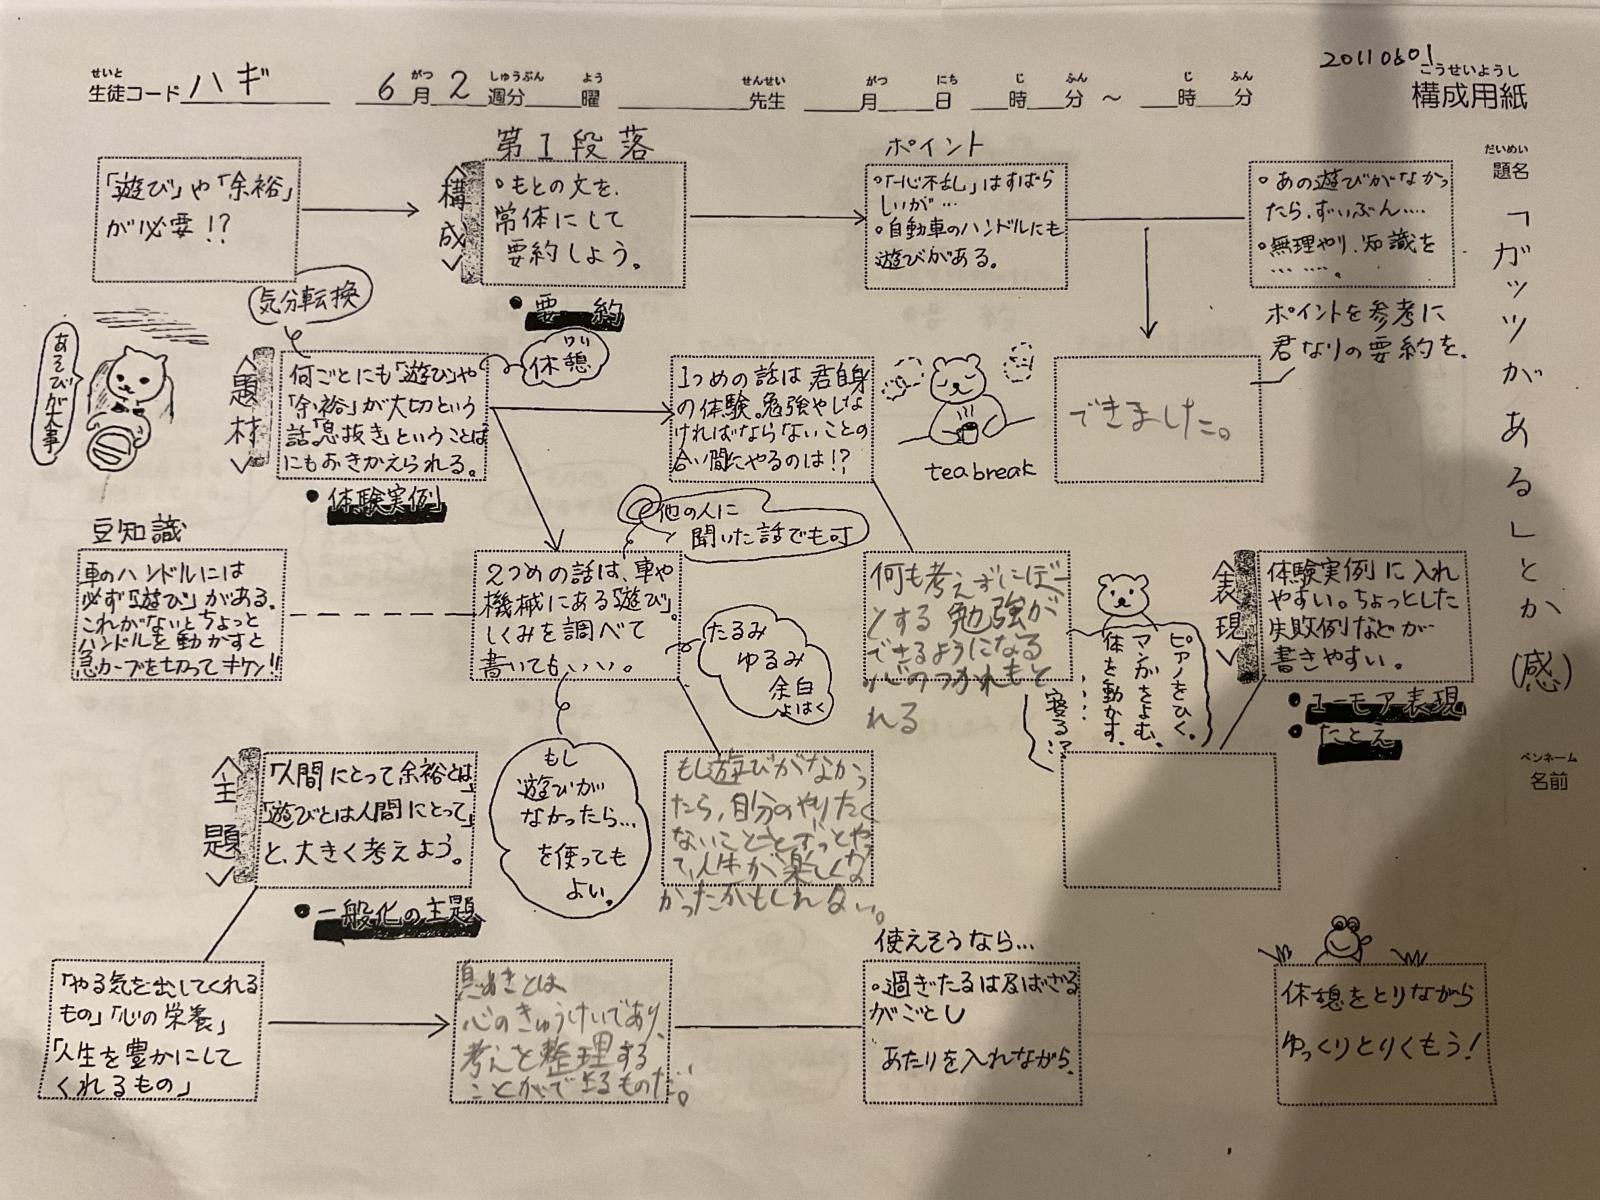 20110601
こうせいようし
構成用紙
せいと
生徒コード ハギ
6月2週分 曜
がつ しゅうぶん よう
せんせい
先生
がつ にち じ ふん じ ふん
月 日 時 分 〜 時 分
だいめい
題名
「ガッツがある」とか(感)
ペンネーム
名前
「遊び」や「余裕」
が必要!?
〈構成〉
第1段落
•もとの文を、
常体にして
要約しよう。
•要約
ポイント
•「一心不乱」はすばら
しいが…
•自動車のハンドルにも
遊びがある。
•あの遊びがなかっ
たら、ずいぶん….
•無理やり、知識を
……….。
ポイントを参考に
君なりの要約を、
できました。
あそびが大事
気分転換
〈題材〉
何ごとにも「遊び」や
「余裕」が大切という
話。「息抜き」ということば
にもおきかえられる。
•体験実例
休憩
1つめの話は君自身
の体験。勉強やしな
ければならないことの
合い間にやるのは!?
tea break
他の人に
聞いた話でも可
豆知識
車のハンドルには
必ず「遊び」がある。
これがないとちょっと
ハンドルを動かすと
急カーブを切ってキケン!!
2つめの話は、車や
機械にある「遊び」。
しくみを調べて
書いてもいい。
たるみ
ゆるみ
余白
よはく
何も考えずにぼー
とする 勉強が
できるようになる
心のつかれもと
れる
ピアノをひく。
マンガをよむ。
体を動かす。
……
寝る!?
〈表現〉
体験実例に入れ
やすい。ちょっとした
失敗例などが
書きやすい。
•ユーモア表現
•たとえ
〈主題〉
「人間にとって余裕とは」
「遊びとは人間にとって」
と、大きく考えよう。
•一般化の主題
もし
遊びが
なかったら…
を使っても
よい。
もし遊びがなかっ
たら、自分のやりたく
ないことをずっとやっ
て、人生が楽しくな
かったかもしれない。
「やる気を出してくれる
もの」「心の栄養」
「人生を豊かにして
くれるもの」
息ぬきとは
心のきゅうけいであり、
考えを整理する
ことができるものだ。
使えそうなら…
•過ぎたるは及ばざる
がごとし
あたりを入れながら、
休憩をとりながら
ゆっくりとりくもう!